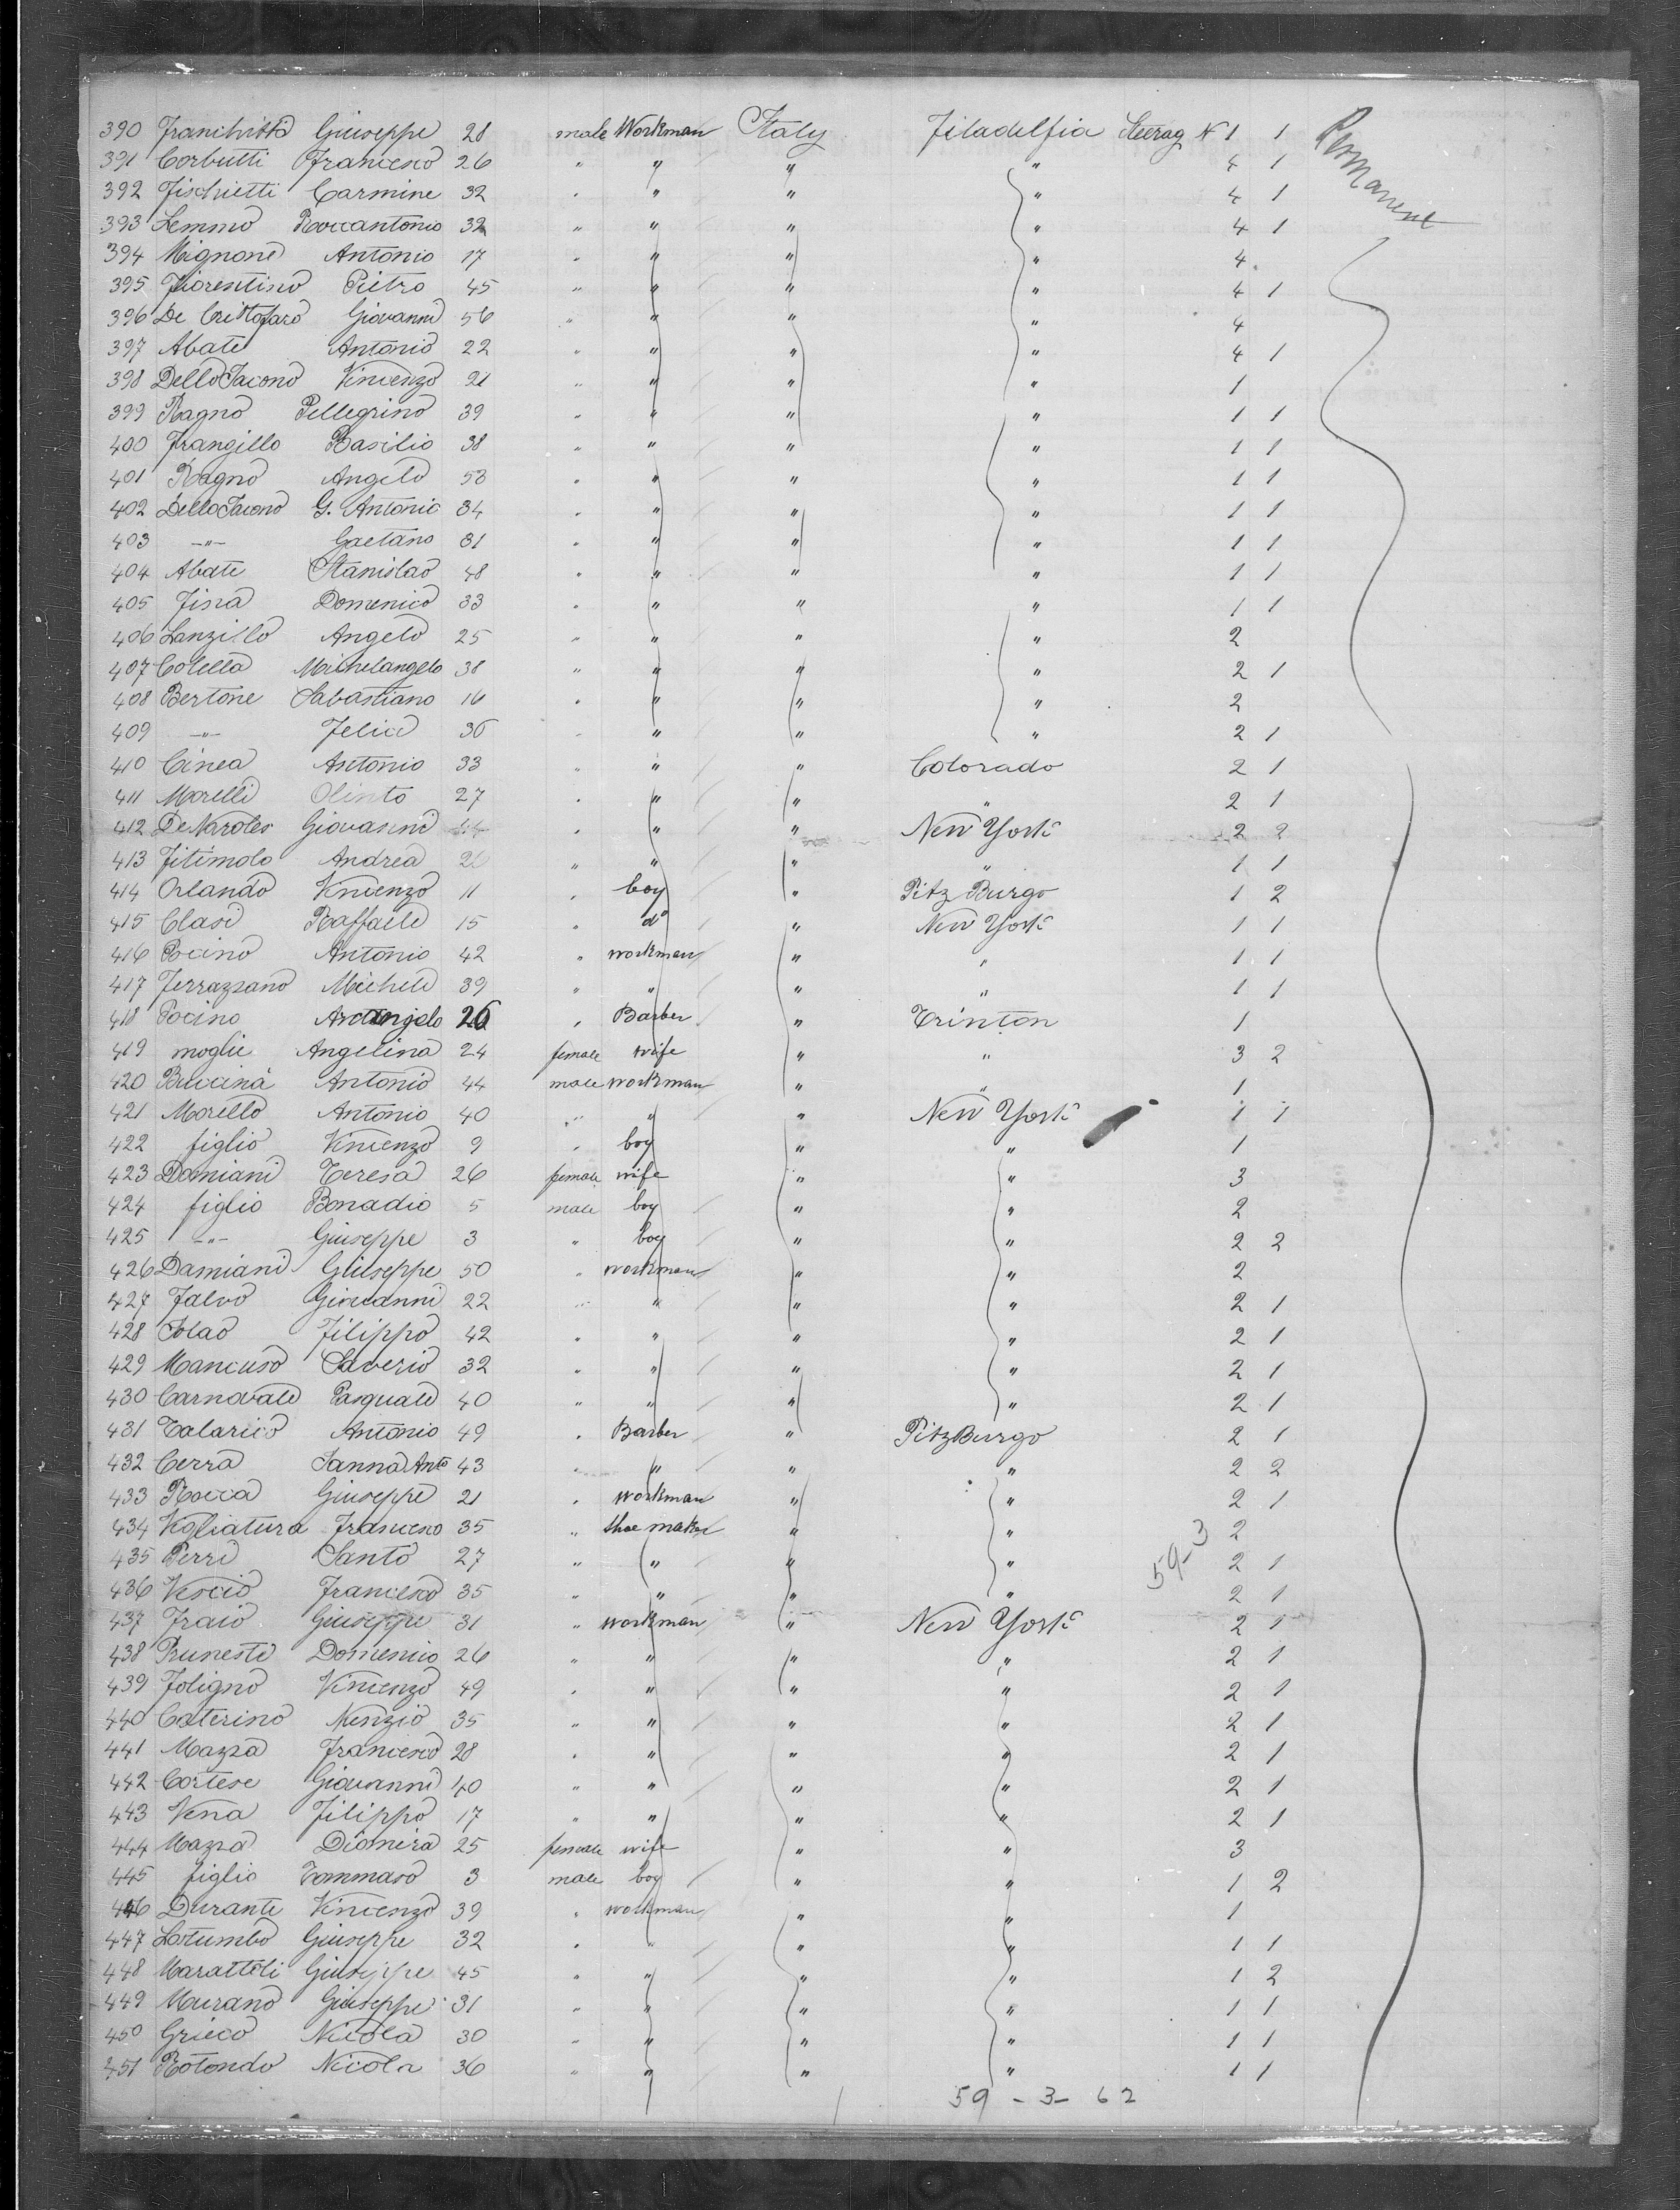 390 Franchitto Giuseppe 28 male Workman Italy Filadelfia Steerag N 1 1 Permanent
391 Corbutti Francesco 26 " " " " 4 1
392 Fischietti Carmine 32 " " " " 4 1
393 Lemmo Roccantonio 32 " " " " 4 1
394 Mignone Antonio 17 " " " " 4
395 Fiorentino Pietro 45 " " " " 4 1
396 De Cristofaro Giovanni 56 " " " " 4
397 Abate Antonio 22 " " " " 4 1
398 Dello Iacono Vincenzo 21 " " " " 1
399 Ragno Pellegrino 39 " " " " 1 1
400 Frangillo Basilio 38 " " " " 1 1
401 Ragno Angelo 53 " " " " 1 1
402 Dello Iacono G. Antonio 34 " " " " 1 1
403 -"- Gaetano 31 " " " " 1 1
404 Abate Stanislao 48 " " " " 1 1
405 Fina Domenico 33 " " " " 1 1
406 Lanzillo Angelo 25 " " " " 2
407 Colella Michelangelo 38 " " " " 2 1
408 Bertone Sabastiano 16 " " " " 2
409 -"- Felice 36 " " " " 2 1
410 Cinea Antonio 33 " " " Colorado 2 1
411 Morelli Olinto 27 " " " " 2 1
412 De Naroles Giovanni " " " New York 2 2
413 Fitimolo Andrea " " " " 1 1
414 Orlando Vincenzo 11 " boy " Pitz Burgo 1 2
415 Clasi Raffaele 15 " do " New York 1 1
416 Pocino Antonio 42 " workman " " 1 1
417 Ferrazzano Michele 39 " " " " 1 1
418 Pocino Arcangelo 26 " Barber " Trinton 1
419 moglie Angelina 24 female wife " " 3 2
420 Buccina Antonio 44 male workman " " 1
421 Morello Antonio 40 " " " New York 1 1
422 figlio Vincenzo 9 " boy " " 1
423 Damiani Teresa 26 female wife " " 3
424 figlio Bonadio 5 male boy " " 2
425 -"- Giuseppe 3 " boy " " 2 2
426 Damiani Giuseppe 50 " workman " " 2
427 Falvo Giovanni 22 " " " " 2 1
428 Filippo 42 " " " " 2 1
429 Mancuso Saverio 32 " " " " 2 1
430 Carnovale Pasquale 40 " " " " 2 1
431 Talarico Antonio 49 " Barber " PitzBurgo 2 1
432 Cerra Ianna Anto 43 " " " " 2 2
433 Rocca Giuseppe 21 " workman " " 2 1
434 Vigliatura Francesco 35 " shoe maker " " 59-3 2
435 Perri Santo 27 " " " " 2 1
436 Vescio Francesco 35 " " " " 2 1
437 Fraio Giuseppe 31 " workman " New York 2 1
438 Prunesti Domenico 26 " " " " 2 1
439 Foligno Vincenzo 49 " " " " 2 1
440 Caterino Nunzio 35 " " " " 2 1
441 Mazza Francesco 28 " " " " 2 1
442 Cortese Giovanni 40 " " " " 2 1
443 Vena Filippo 17 " " " " 2 1
444 Mazza Dionira 25 female wife " " 3
445 figlio Tommaso 3 male boy " " 1 2
446 Durante Vincenzo 39 " workman " " 1
447 Lotumbo Giuseppe 32 " " " " 1 1
448 Marattoli Giuseppe 45 " " " " 1 2
449 Murano Giuseppe 31 " " " " 1 1
450 Grieco Nicola 30 " " " " 1 1
451 Rotondo Nicola 36 " " " " 1 1
59 - 3 - 62